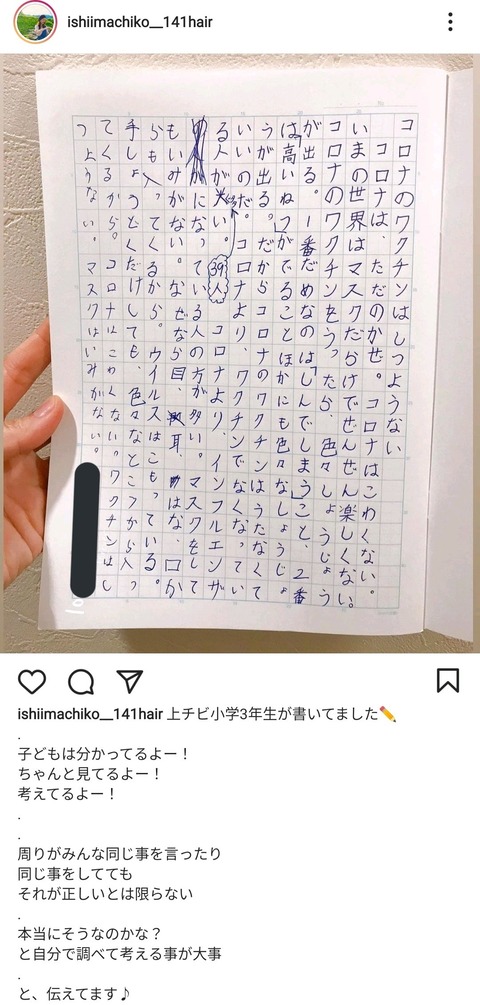 ishiimachiko__141hair
コロナのワクチンはしつようない
コロナは、ただのかせ。コロナはこわくない。
いまの世界は、マスクだらけでぜんぜん楽しくない。
コロナのワクチンをうったら、色々しょうじょう
が出る。一番だめなのは「しんでしまうこと、2番
は「高いねつ」がでることほかにも色々しょうじょ
うが出る。だからコロナのワクチンはうたなくて
いいのだ。コロナよりワクチンでなくなってい
る人が多い。コロナより、インフルエンザ
39人
になっている人の方が多い。マスクをして
もいみがない。なぜなら目、耳、はな、口か
らも入
手しょうどくだけしても色々なとこから入っ
てくるから。コロナはこわくない。ワクチンはし
つようない。マスクはいみがない。
ishiimachiko__141hair 上チビ小学3年生が書いてました✏️
.
子どもは分かってるよー！
ちゃんと見てるよー！
考えてるよー！
.
.
周りがみんな同じ事を言ったり
同じ事をしてても
それが正しいとは限らない
.
本当にそうなのかな？
と自分で調べて考える事が大事
.
と、伝えてます♪